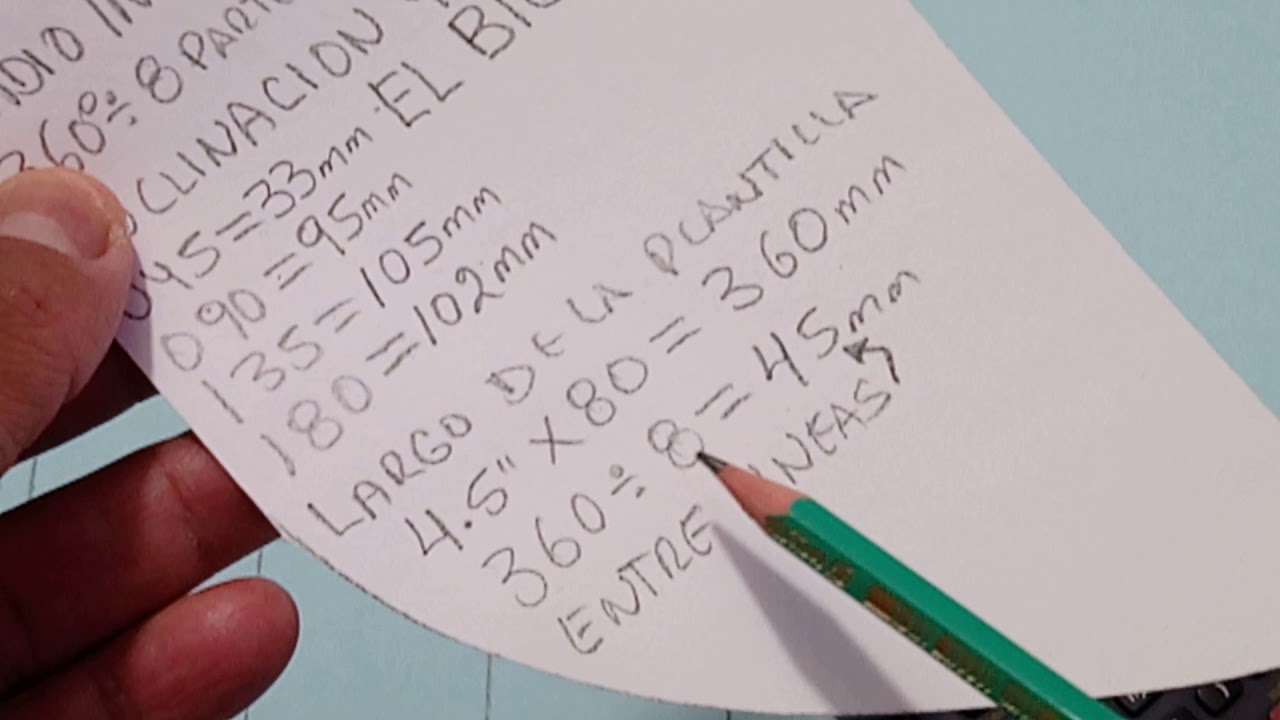 360°÷8 PART
CLINACION
045=33mm EL BI
090=95mm
135=105mm
180=102mm
LARGO DE LA PLANTILLA
4.5" X 80 = 360mm
360÷8=45mm
ENTRE INEAS